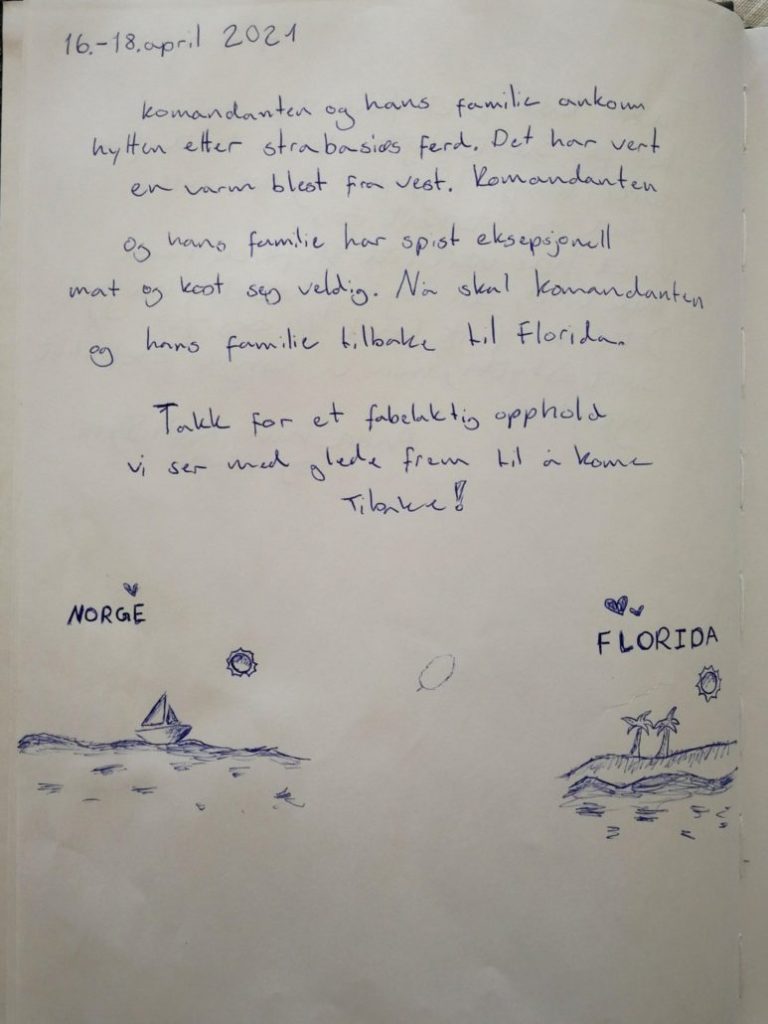 16.-18.april 2021
Komandanten og hans familie ankom
hytten etter strabasiøs ferd. Det har vert
en varm blest fra vest. Komandanten
og hans familie har spist eksepsjonell
mat og kost seg veldig. Nå skal Komandanten
og hans familie tilbake til Florida.
Takk for et fabelaktig opphold
vi ser med glede frem til å kome
Tilbake!
NORGE
FLORIDA